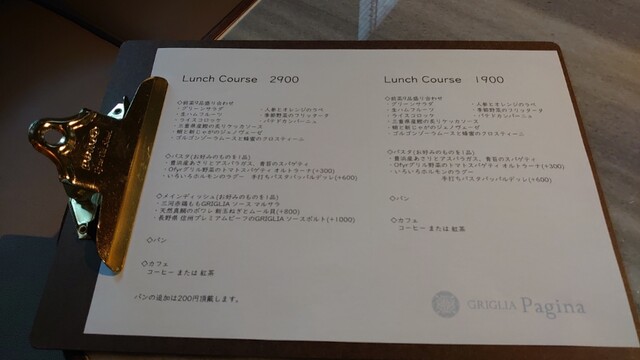 Lunch Course 2900
◇前菜9品盛り合わせ
・グリーンサラダ ・人参とオレンジのラペ
・生ハムフルーツ ・季節野菜のフリッタータ
・ライスコロッケ ・パテドカンパーニュ
・三重県産鰹の炙りヤッカソース
・蛸と新じゃがのジェノヴェーゼ
・ゴルゴンゾーラムースと蜂蜜のクロスティーニ
◇パスタ(お好みのものを1品)
・豊浜産あさりとアスパラガス、青旨のスパゲティ
・Ofyrグリル野菜のトマトスパゲティ オルトラーナ(+300)
・いろいろホルモンのラグー 手打ちパスタパッパルデッレ(+600)
◇メインディッシュ(お好みのものを1品)
・三河赤鶏ももGRIGLIA ソース マルサラ
・天然真鯛のポワレ 新玉ねぎとムール貝(+800)
・長野県 信州プレミアムビーフのGRIGLIA ソースポルト(+1000)
◇パン
◇カフェ
コーヒー または 紅茶
パンの追加は200円頂戴します。
Lunch Course 1900
◇前菜9品盛り合わせ
・グリーンサラダ ・人参とオレンジのラペ
・生ハムフルーツ ・季節野菜のフリッタータ
・ライスコロッケ ・パテドカンパーニュ
・三重県産鰹の炙りヤッカソース
・蛸と新じゃがのジェノヴェーゼ
・ゴルゴンゾーラムースと蜂蜜のクロスティーニ
◇パスタ(お好みのものを1品)
・豊浜産あさりとアスパラガス、青旨のスパゲティ
・Ofyrグリル野菜のトマトスパゲティ オルトラーナ(+300)
・いろいろホルモンのラグー
手打ちパスタパッパルデッレ(+600)
◇パン
◇カフェ
コーヒー または 紅茶
GRIGLIA Pagina